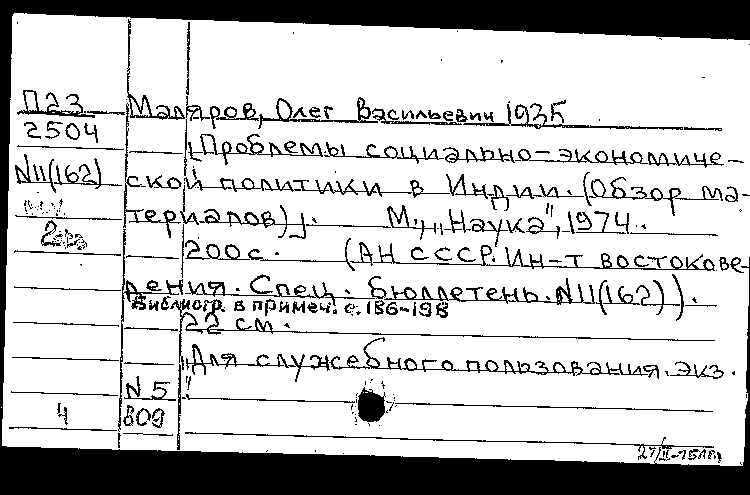 П23 Маляров, Олег Васильевич 1935
2504 [Проблемы социально-экономиче-
N11(162) ской политики в Индии. (Обзор ма-
териалов)]. М., „Наука", 1974.
200с. (АН СССР. Ин-т востокове-
дения. Спец. бюллетень. N11(162)).
Библиогр. в примеч.: с. 186-198
22 см.
„Для служебного пользования. экз.
N 5 "
4 809